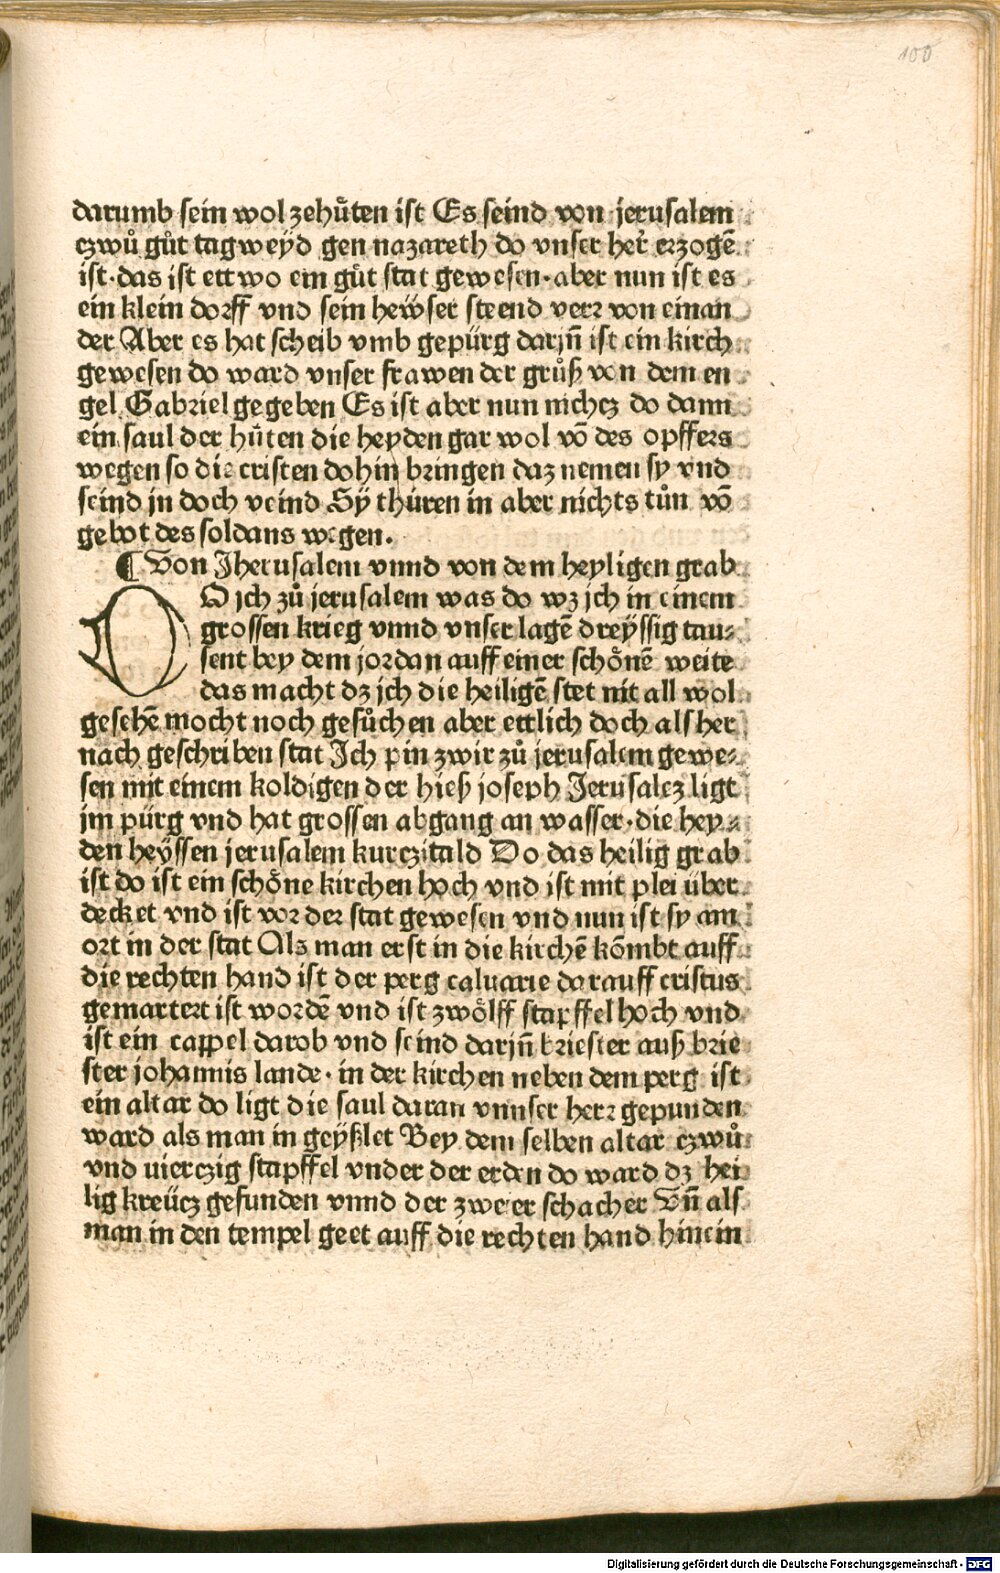 100
darumb sein wol zehuͤten ist Es seind von jerusalem
czwuͦ guͦt tagweyd gen nazareth do vnser herr erzogē
ist·das ist ettwo ein guͦt stat gewesen·aber nun ist es
ein klein dorff vnd sein heẅser steend verr von einan
der Aber es hat scheib vmb gepürg darjn̄ ist ein kirch
gewesen do ward vnser frawen der gruͦß von dem en
gel Gabriel gegeben Es ist aber nun nichcz do dann
ein saul der huͤten die heyden gar wol vō des opffers
wegen so die cristen dohin bringen daz nemen sy vnd
seind jn doch veind Sÿ thüren in aber nichts tuͦn vō
gebot des soldans wegen.
¶ Von Jherusalem vnnd von dem heyligen grab
DO jch zuͦ jerusalem was do wz jch in einem
grossen krieg vnnd vnser lagē dreÿssig tau⸗
sent bey dem jordan auff einer schoͤnē weite
das macht dz jch die heiligē stet nit all wol
gesehē mocht noch gesuͦchen aber ettlich doch als her
nach geschriben stat Ich pin zwir zuͦ jerusalem gewe⸗
sen mit einem koldigen der hieß joseph Jerusalez ligt
jm pürg vnd hat grossen abgang an wasser·die hey⸗
den heyssen jerusalem kurczitald Do das heilig grab
ist do ist ein schoͤne kirchen hoch vnd ist mit plei über
decket vnd ist vor der stat gewesen vnd nun ist sy am
ort in der stat Als man erst in die kirchē kōmbt auff
die rechten hand ist der perg caluarie darauff cristus
gemartert ist wordē vnd ist zwoͤlff stapffel hoch vnd
ist ein cappel darob vnd seind darjn̄ briester auß brie
ster johannis lande· in der kirchen neben dem perg ist
ein altar do ligt die saul daran vnnser herr gepunden
ward als man in geyßlet Bey dem selben altar czwuͦ
vnd vierczig stapffel vnder der erden do ward dz hei
lig kreücz gefunden vnnd der zweier schacher Vn̄ als
man in den tempel geet auff die rechten hand hinein
Digitalisierung gefördert durch die Deutsche Forschungsgemeinschaft - DFG